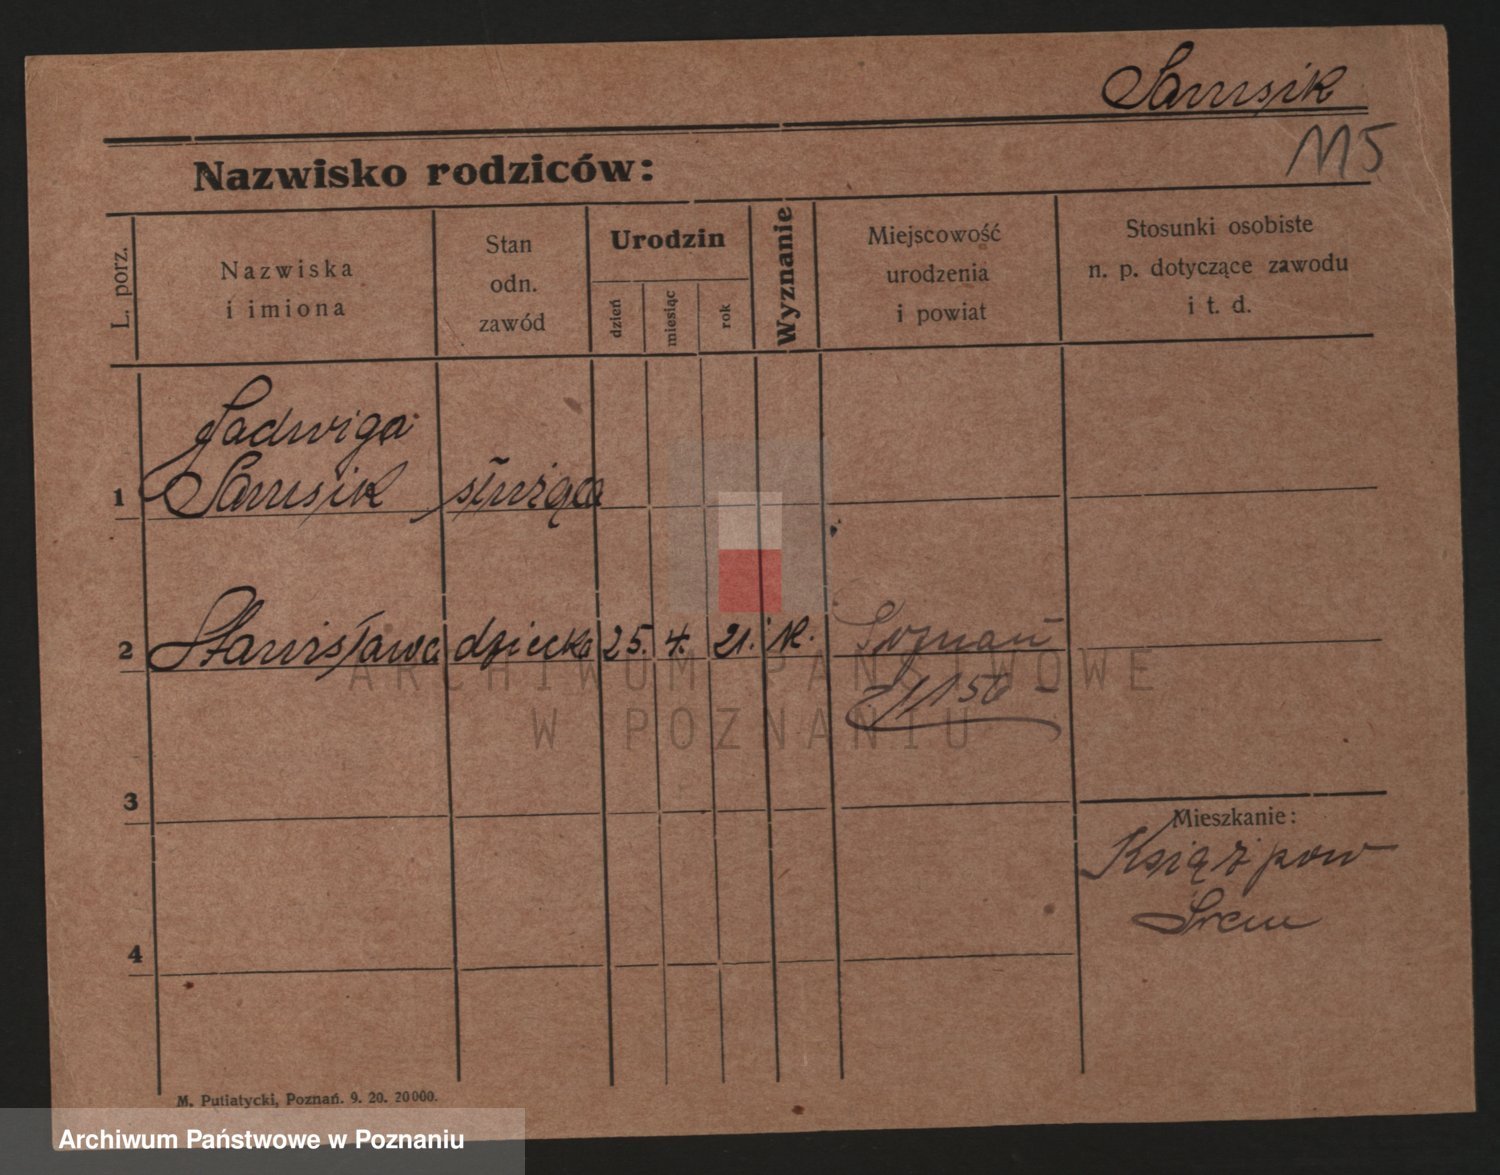 Samsik
115
Nazwisko rodziców:
L. porz.
Nazwiska
i imiona
Stan
odn.
zawód
Urodzin
dzień
miesiąc
rok
Wyznanie
Miejscowość
urodzenia
i powiat
Stosunki osobiste
n. p. dotyczące zawodu
i t. d.
Jadwiga
1 Samsik służąca
2 Stanisława dziecko 25. 4. 21. K. Poznań
1150
ARCHIWUM PAŃSTWOWE
W POZNANIU
3
Mieszkanie:
Książ pow
Śrem
4
M. Putiatycki, Poznań. 9. 20. 20000.
Archiwum Państwowe w Poznaniu